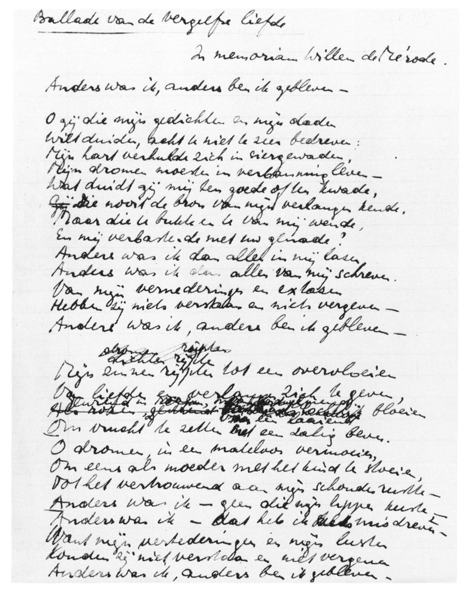 Ballade van de vergeefse liefde
In memoriam Willem de Mérode.
Anders was ik, anders ben ik gebleven –
O gij die mijn gedichten en mijn daden
Wilt duiden, acht u niet te zeer bedreven:
Mijn hart verhulde zich in siergewaden,
Mijn dromen moeden in verbanning leven –
Wat duidt gij mij ten goede of ten kwade,
Gij die nooit de bron van mijn verlangen kende,
Maar die u bukte en u van mij wende,
En mij verbaste de met uw genade?
Anders was ik dan allen in mij lazen
Anders was ik dan allen van mij schreven.
Van mijn vernederingen en extasen
Hebben zij niets verstaan en niets vergeven –
Anders was ik, anders ben ik gebleven –
Mijn zinnen rijpten tot een overvloeien
liefde en zich te geven,
bloeien
Om vrucht te zetten met een zalig beven.
O dromen, in een mateloos vermoeien,
Om eens als moeder met het kind te stoeien,
Dat het vertrouwend aan mijn schouder rustte –
Anders was ik – geen die mijn lippen kuste –
Anders was ik – dat heb ik misdreven –
Want mijn vertederingen en mijn lusten
Konden zij niet verstaan en niet vergeven
Anders was ik, anders ben ik gebleven –